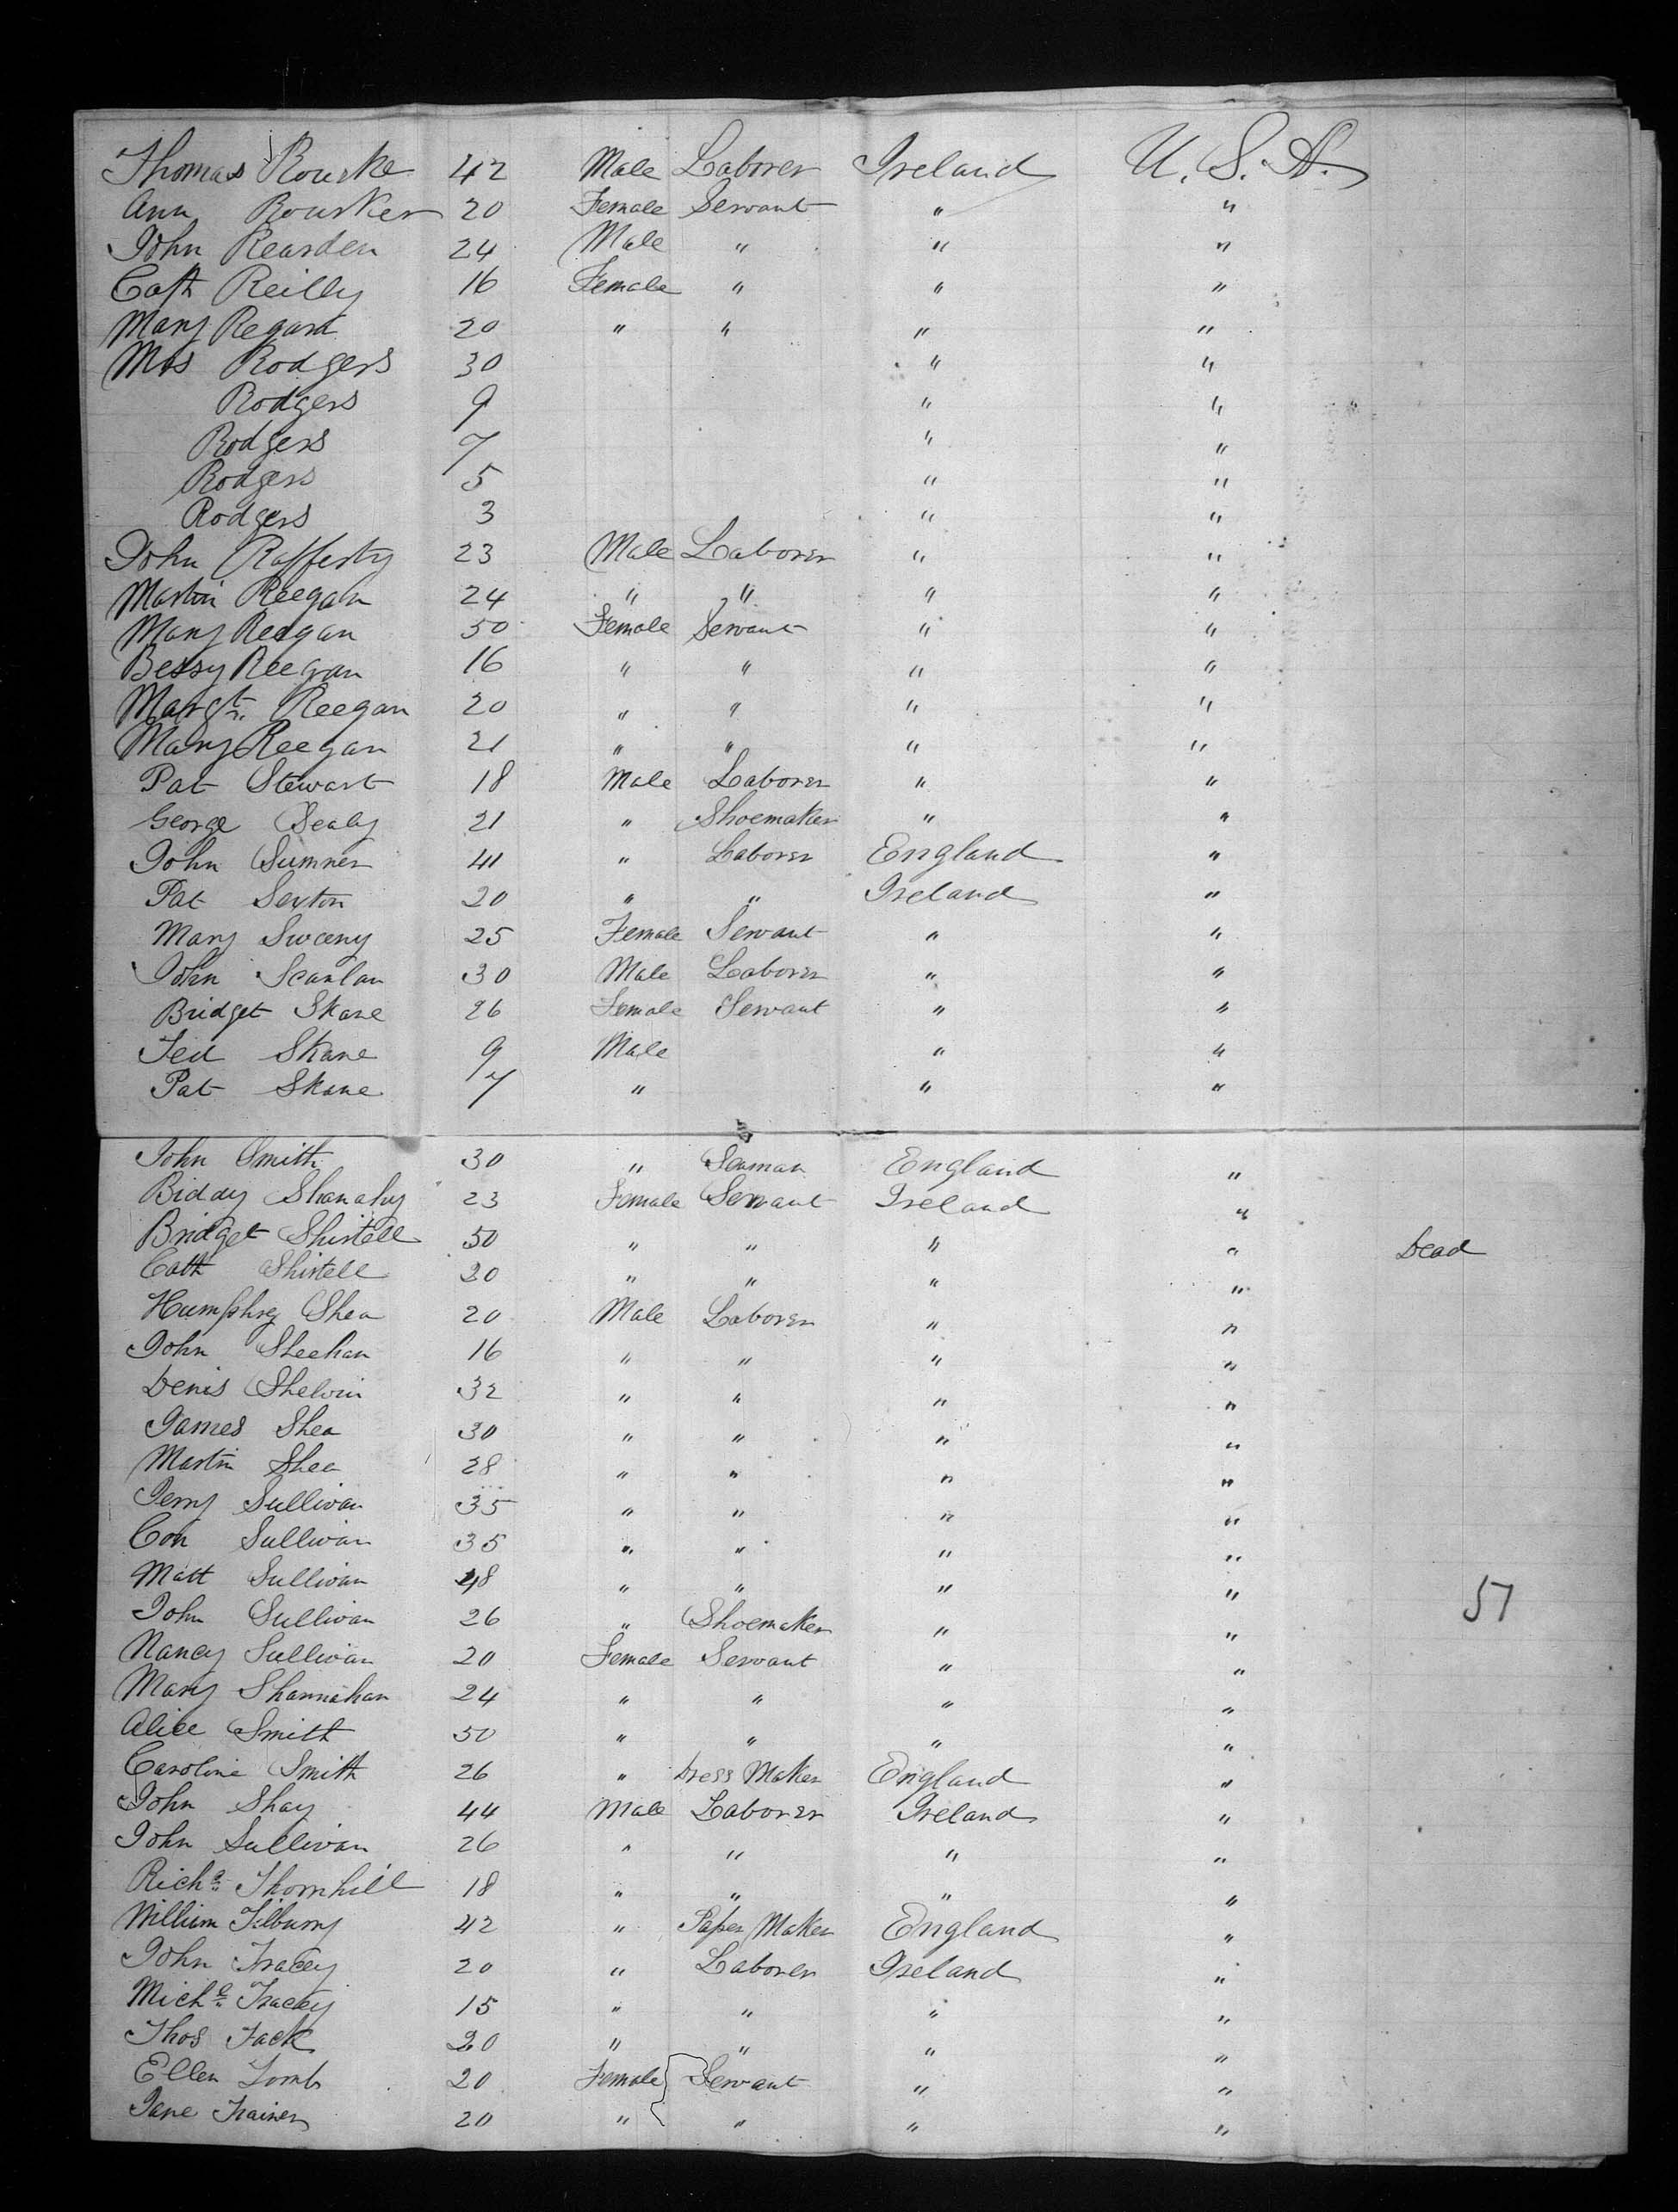 Thomas Rourke 42 Male Laborer Ireland U. S. A.
Ann Rourke 20 Female Servant " "
John Rearden 24 Male " " "
Cath Reilly 16 Female " " "
Mary Regan 20 " " " "
Mrs Rodgers 30 " "
Rodgers 9 " "
Rodgers 7 " "
Rodgers 5 " "
Rodgers 3 " "
John Rafferty 23 Male Laborer " "
Martin Reegan 24 " " " "
Mary Reegan 50 Female Servant " "
Bessy Reegan 16 " " " "
Margt. Reegan 20 " " " "
Mary Reegan 21 " " " "
Pat Stewart 18 Male Laborer " "
George Sealy 21 " Shoemaker " "
John Sumner 41 " Laborer England "
Pat Sexton 20 " " Ireland "
Mary Sweeny 25 Female Servant " "
John Scanlan 30 Male Laborer " "
Bridget Skane 26 Female Servant " "
Ted Skane 9 Male " "
Pat Skane 7 " " "
John Smith 30 " Seaman England "
Biddy Shanahy 23 Female Servant Ireland "
Bridget Shistell 50 " " " " Dead
Cath Shistell 20 " " " "
Humphrey Shea 20 Male Laborer " "
John Sheehan 16 " " " "
Denis Shelvin 32 " " " "
James Shea 30 " " " "
Martin Shea 28 " " " "
Jerry Sullivan 35 " " " "
Con Sullivan 35 " " " "
Matt Sullivan 48 " " " "
John Sullivan 26 " Shoemaker " " 57
Nancy Sullivan 20 Female Servant " "
Mary Shannahan 24 " " " "
Alice Smith 50 " " " "
Caroline Smith 26 " Dress Maker England "
John Shay 44 Male Laborer Ireland "
John Sullivan 26 " " " "
Richd. Thornhill 18 " " " "
William Tilbury 42 " Paper Maker England "
John Tracey 20 " Laborer Ireland "
Michl. Tracey 15 " " " "
Thos Tack 20 " " " "
Ellen Tomb 20 Female Servant " "
Jane Trainer 20 " " " "